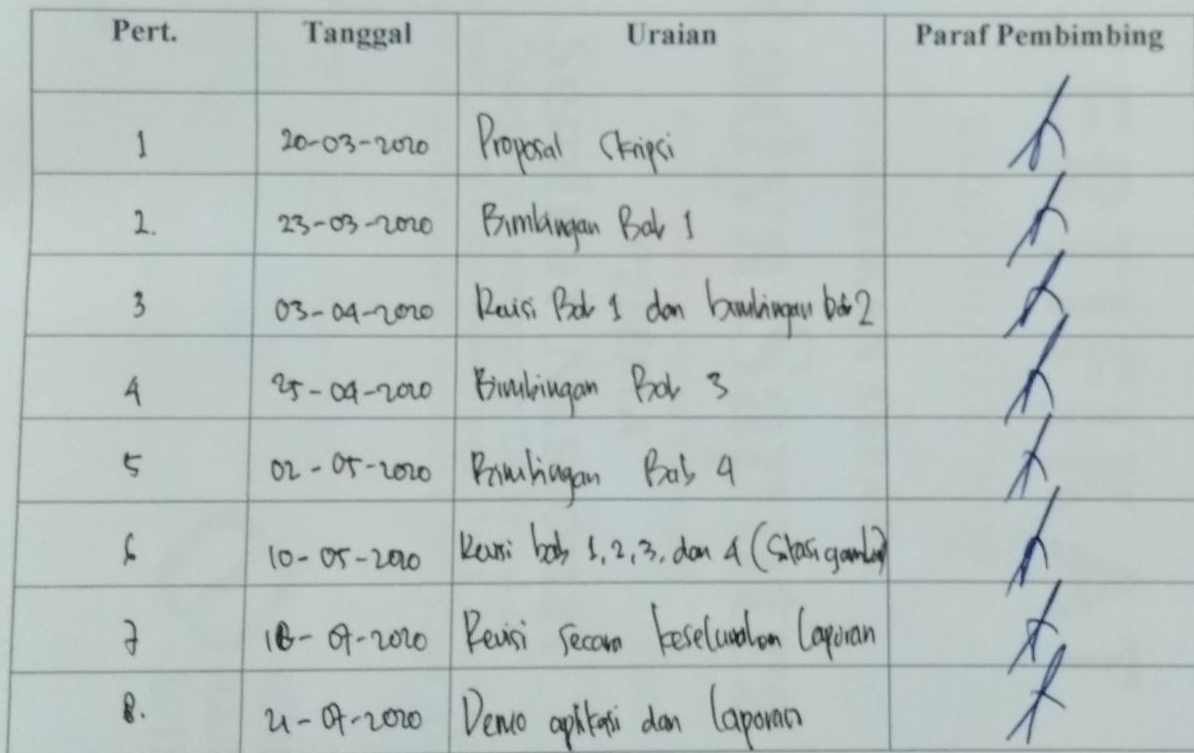 Pert. Tanggal Uraian Paraf Pembimbing
1 20-03-2020 Proposal Skripsi
2. 23-03-2020 Bimbingan Bab 1
3 03-04-2020 Revisi Bab 1 dan bimbingan bab 2
4 25-04-2020 Bimbingan Bab 3
5 02-05-2020 Bimbingan Bab 4
6 10-05-2020 Revisi bab 1, 2, 3, dan 4 (Sitasi gambar)
7 18-07-2020 Revisi secara keseluruhan laporan
8. 21-07-2020 Demo aplikasi dan laporan